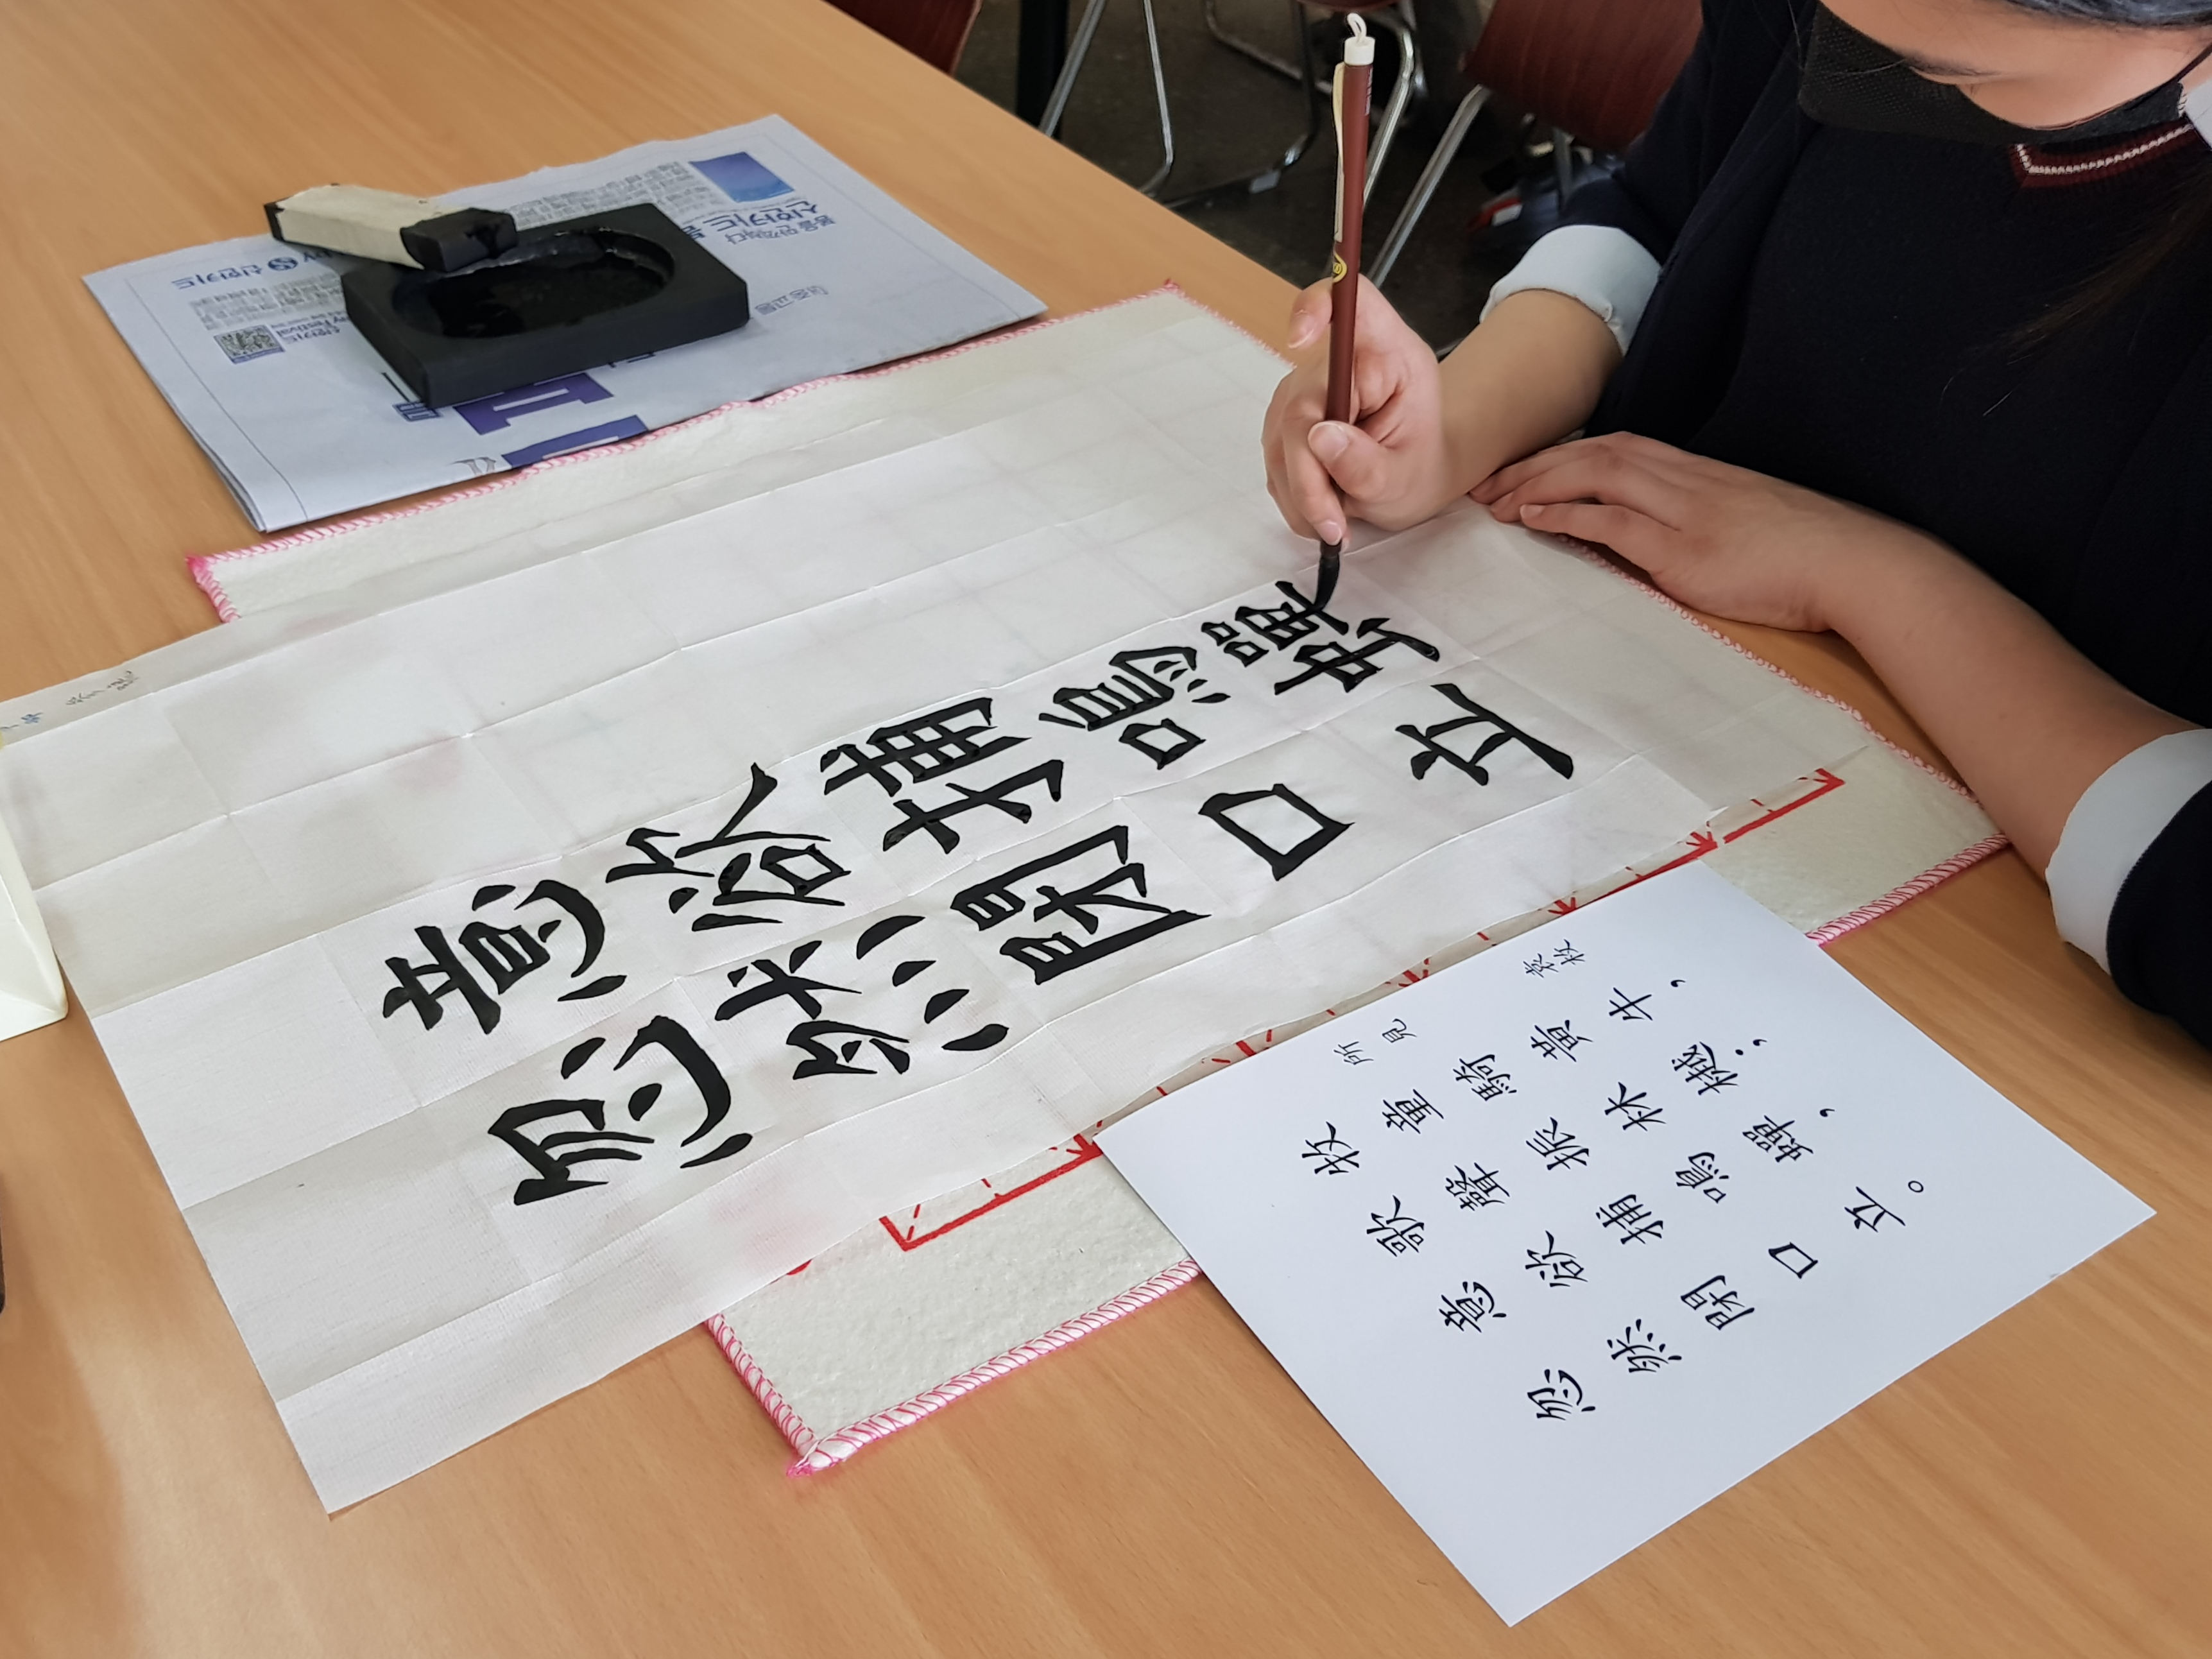 신한카드
신한카드
意欲捕鳴蟬
忽然閉口立
所見
袁枚
牧童騎黃牛，
歌聲振林樾；
意欲捕鳴蟬，
忽然閉口立。